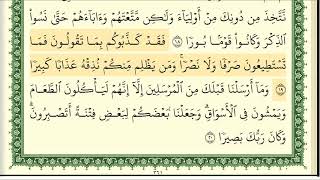 نَّتَّخِذَ مِن دُونِكَ مِنْ أَوْلِيَآءَ وَلَٰكِن مَّتَّعْتَهُمْ وَءَابَآءَهُمْ حَتَّىٰ نَسُوا۟
ٱلذِّكْرَ وَكَانُوا۟ قَوْمًۢا بُورًا ١٨ فَقَدْ كَذَّبُوكُم بِمَا تَقُولُونَ فَمَا
تَسْتَطِيعُونَ صَرْفًا وَلَا نَصْرًا ۚ وَمَن يَظْلِم مِّنكُمْ نُذِقْهُ عَذَابًا كَبِيرًا
١٩ وَمَآ أَرْسَلْنَا قَبْلَكَ مِنَ ٱلْمُرْسَلِينَ إِلَّآ إِنَّهُمْ لَيَأْكُلُونَ ٱلطَّعَامَ
وَيَمْشُونَ فِى ٱلْأَسْوَاقِ ۗ وَجَعَلْنَا بَعْضَكُمْ لِبَعْضٍ فِتْنَةً أَتَصْبِرُونَ ۗ
وَكَانَ رَبُّكَ بَصِيرًا ٢٠
٣٦١